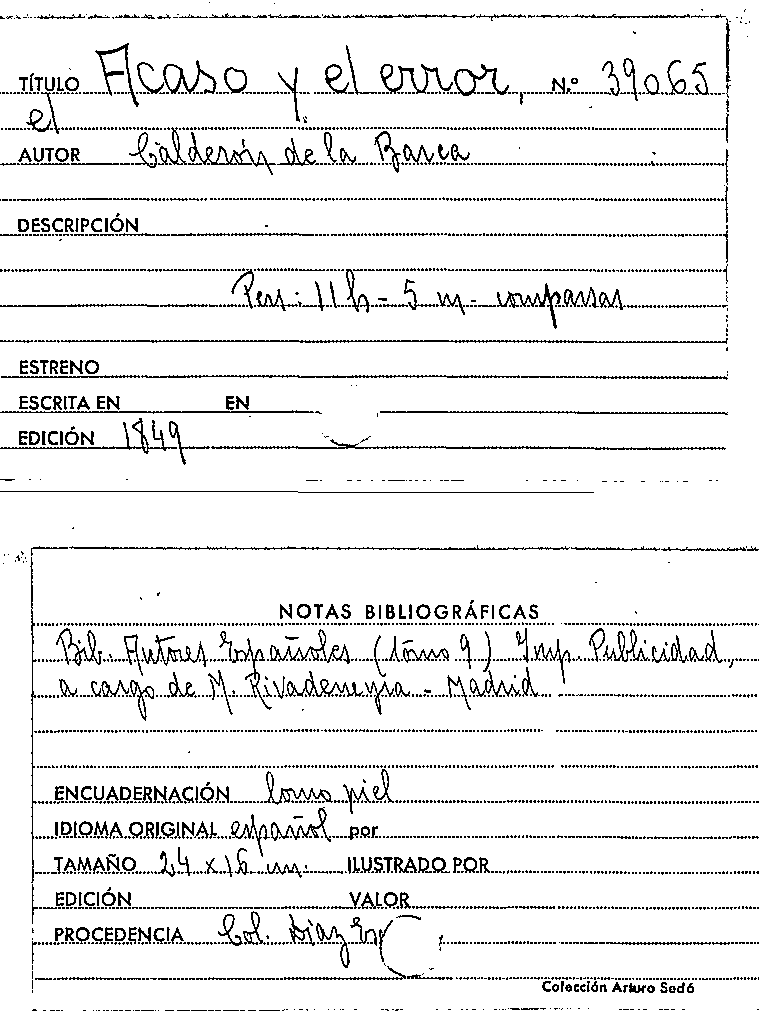 TÍTULO Acaso y el error, N.º 39065
el
AUTOR Calderón de la Barca
DESCRIPCIÓN
Pers: 11 h - 5 m - comparsas
ESTRENO
ESCRITA EN EN
EDICIÓN 1849
NOTAS BIBLIOGRÁFICAS
Bib. Autores Españoles (tomo 9) Imp. Publicidad,
a cargo de M. Rivadeneyra - Madrid
ENCUADERNACIÓN lomo piel
IDIOMA ORIGINAL español por
TAMAÑO 24 x 16 cm. ILUSTRADO POR
EDICIÓN VALOR
PROCEDENCIA Col. Díaz
Colección Arturo Sedó